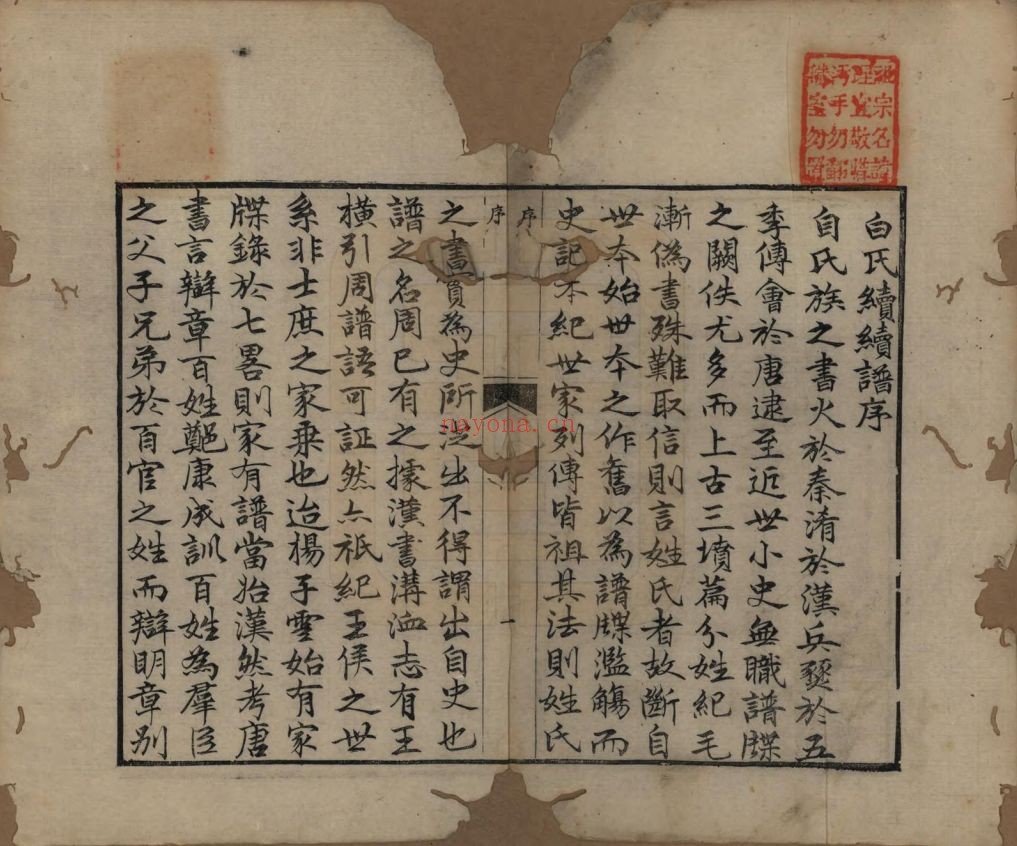 白氏續續譜序
自氏族之書火於秦淆於漢兵燹於五
季傅會於唐逮至近世小史無職譜牒
之闕佚尤多而上古三墳篇分姓紀毛
漸僞書殊難取信則言姓氏者故斷自
世本始世本之作舊以為譜牒濫觴而
史記本紀世家列傳皆祖其法則姓氏
序
序
一
之書實為史所泛出不得謂出自史也
譜之名周已有之據漢書溝洫志有王
橫引周譜語可証然亦祇紀王侯之世
系非士庶之家乗也迨楊子雲始有家
牒錄於七畧則家有譜當始漢然考唐
書言辯章百姓鄭康成訓百姓為羣臣
之父子兄弟於百官之姓而辯明章别
祖宗名諱
理宜敬惜
污手勿翻
褻室勿置
nayona.cn